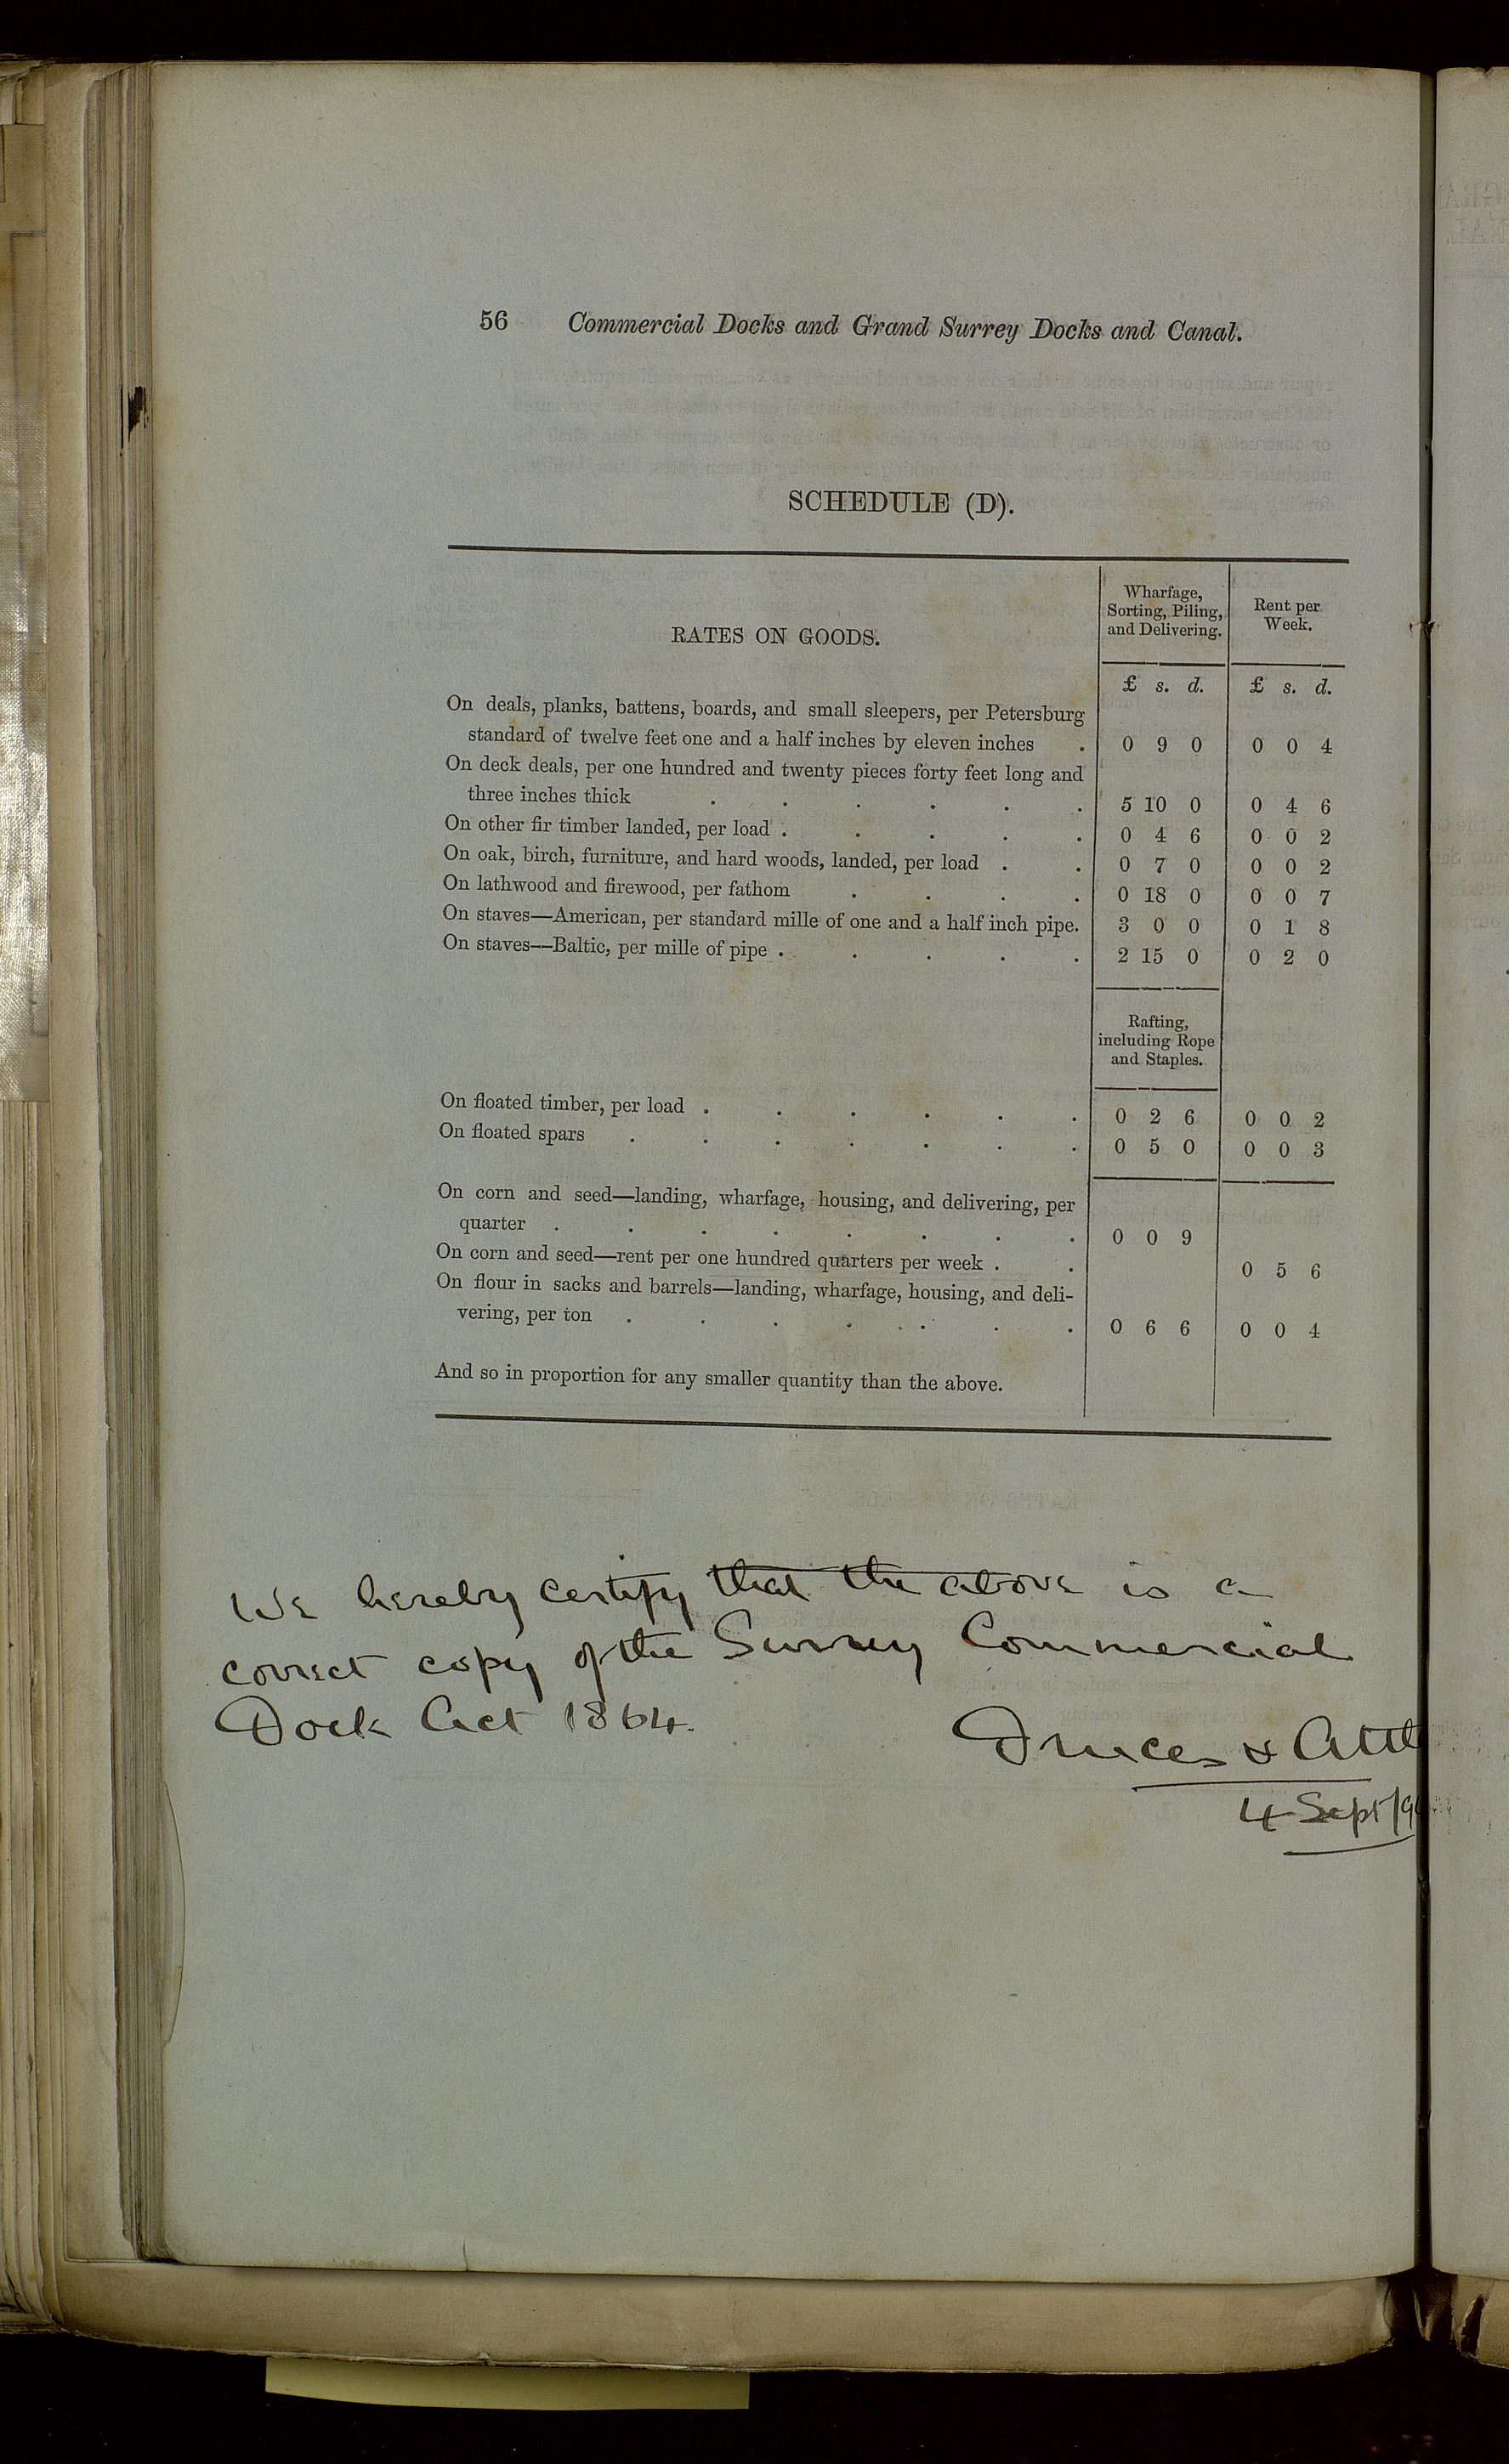 56 Commercial Docks and Grand Surrey Docks and Canal.
SCHEDULE (D).
RATES ON GOODS.
Wharfage,
Sorting, Piling,
and Delivering.
Rent per
Week.
£ s. d. £ s. d.
On deals, planks, battens, boards, and small sleepers, per Petersburg
standard of twelve feet one and a half inches by eleven inches . 0 9 0 0 0 4
On deck deals, per one hundred and twenty pieces forty feet long and
three inches thick . . . . . . 5 10 0 0 4 6
On other fir timber landed, per load . . . . . 0 4 6 0 0 2
On oak, birch, furniture, and hard woods, landed, per load . . 0 7 0 0 0 2
On lathwood and firewood, per fathom . . . . 0 18 0 0 0 7
On staves—American, per standard mille of one and a half inch pipe. 3 0 0 0 1 8
On staves—Baltic, per mille of pipe . . . . . 2 15 0 0 2 0
Rafting,
including Rope
and Staples.
On floated timber, per load . . . . . . 0 2 6 0 0 2
On floated spars . . . . . . . 0 5 0 0 0 3
On corn and seed—landing, wharfage, housing, and delivering, per
quarter . . . . . . . . 0 0 9
On corn and seed—rent per one hundred quarters per week . . 0 5 6
On flour in sacks and barrels—landing, wharfage, housing, and deli-
vering, per ton . . . . . . . 0 6 6 0 0 4
And so in proportion for any smaller quantity than the above.
We hereby certify that the above is a
correct copy of the Surrey Commercial
Dock Act 1864.
Druces & Attl
4 Sept/9